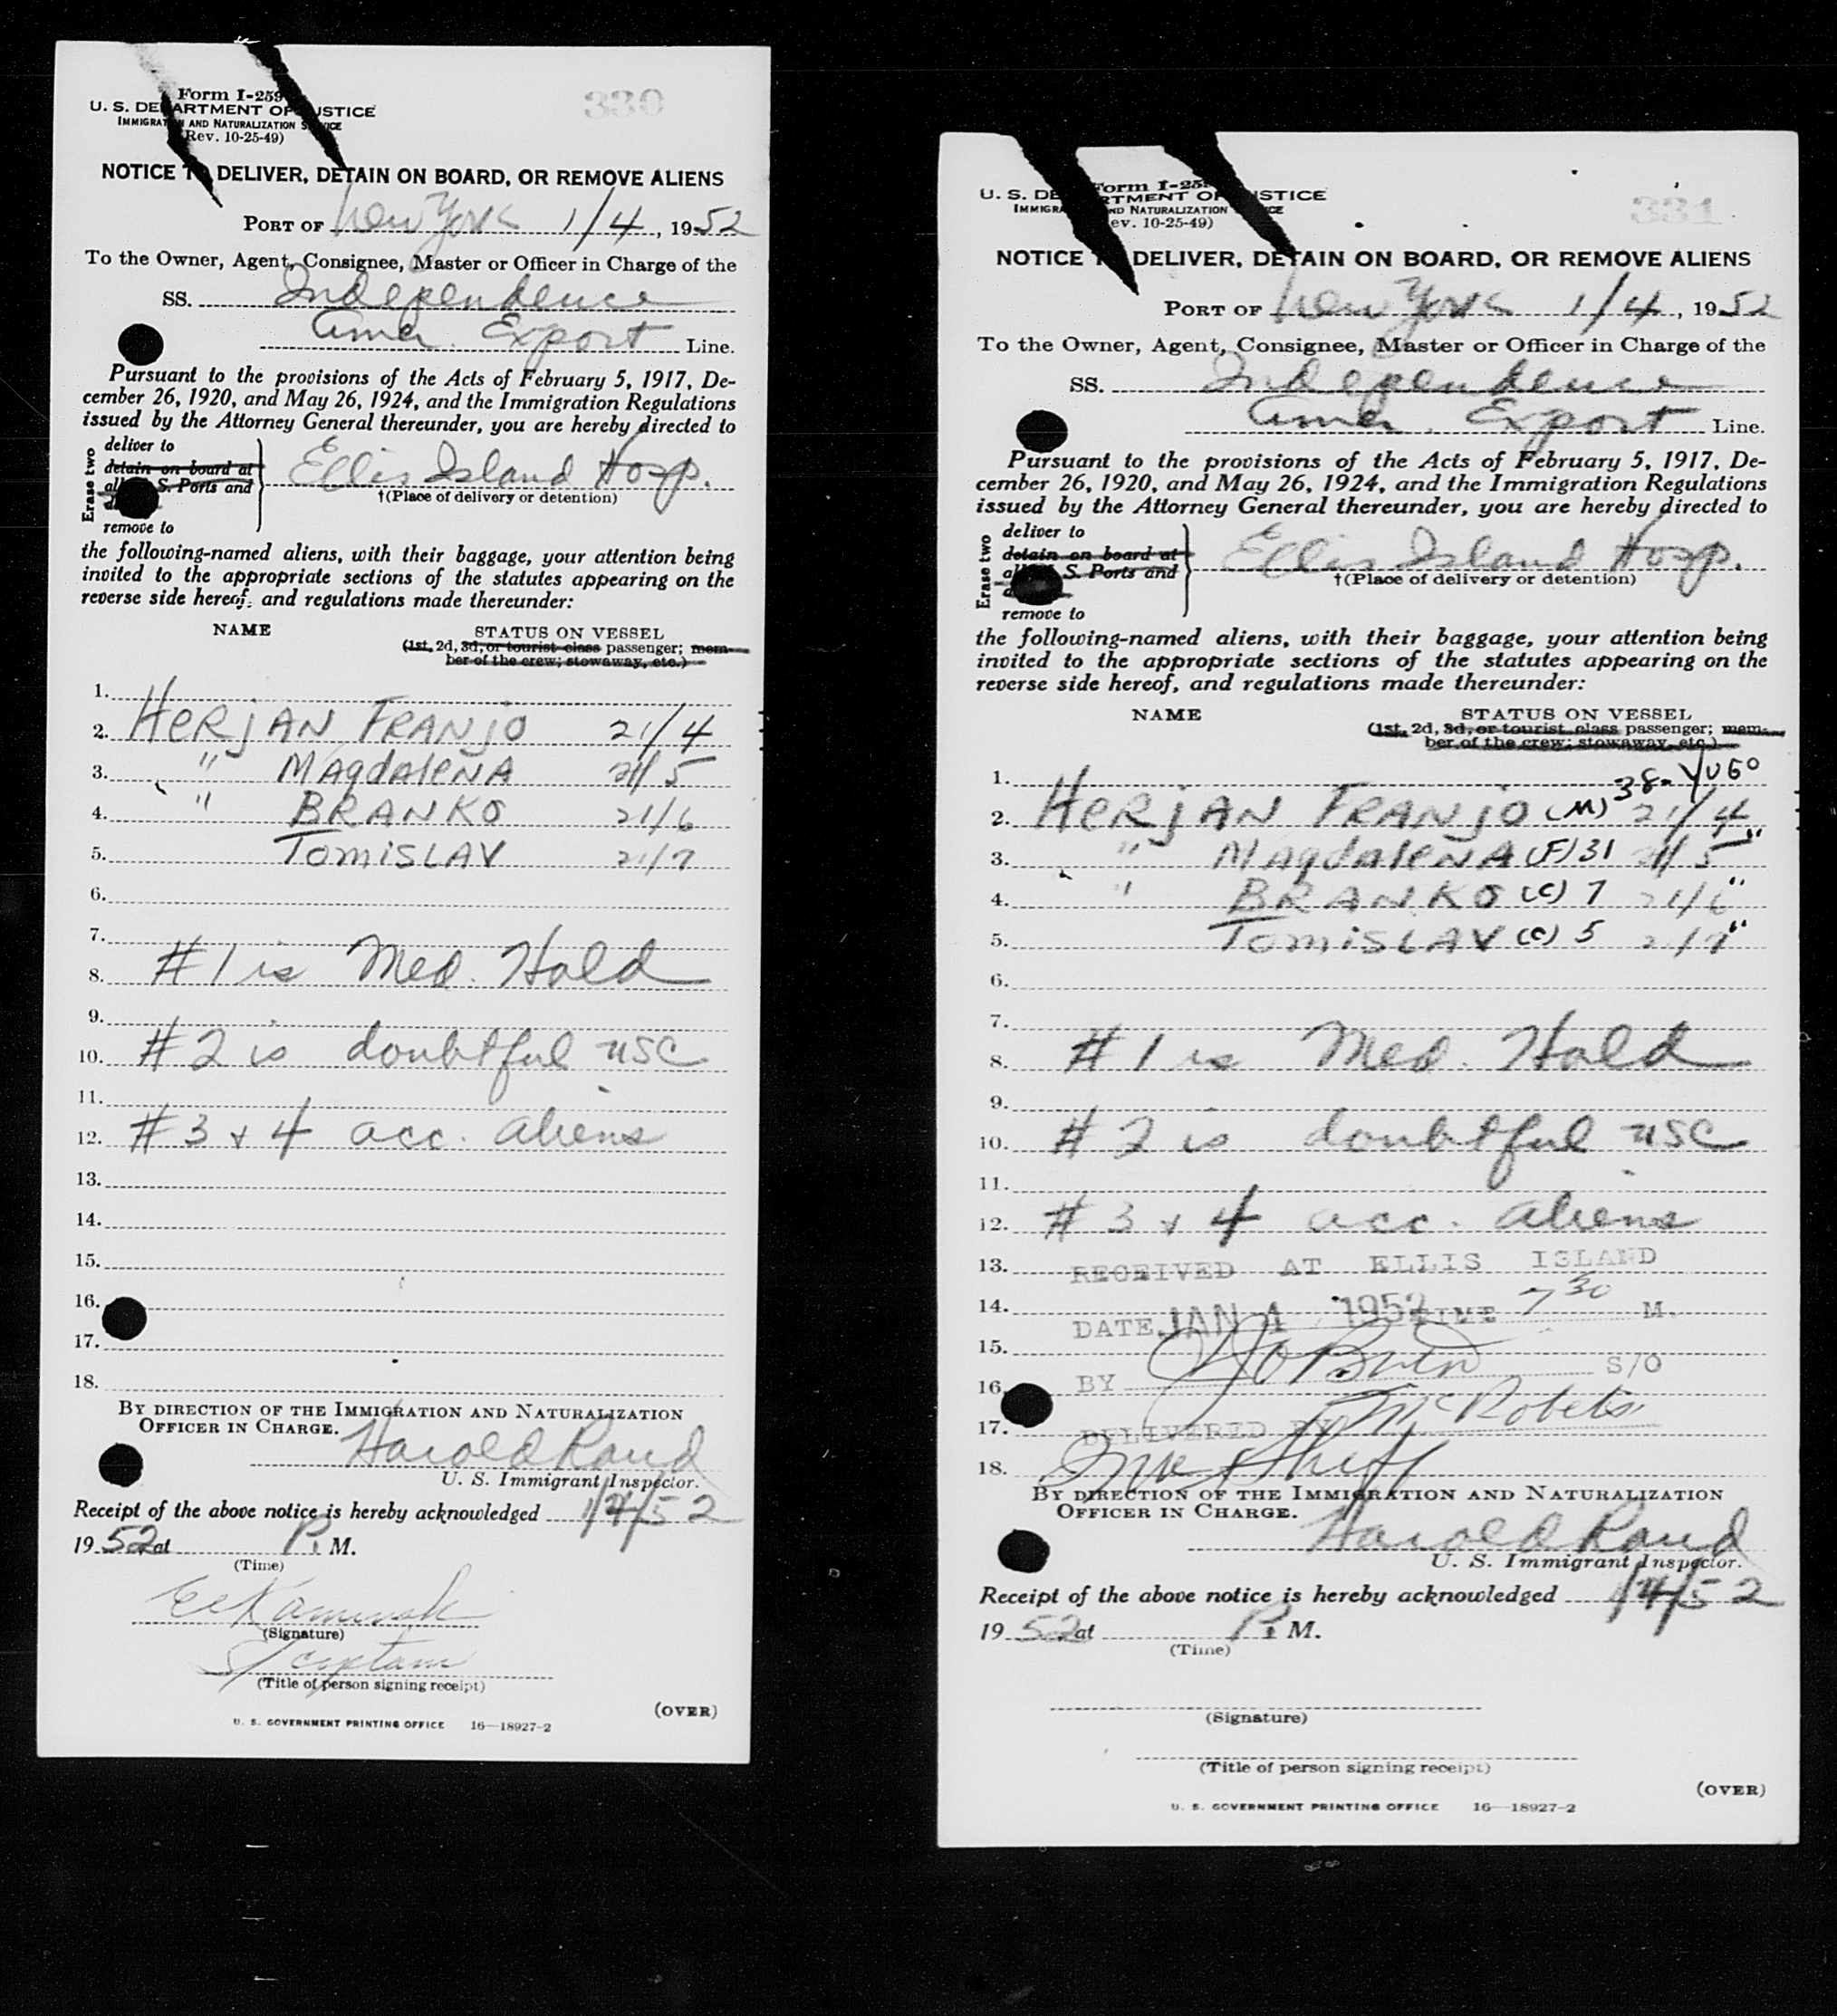 330
Form I-259
U. S. DEPARTMENT OF JUSTICE
IMMIGRATION AND NATURALIZATION SERVICE
(Rev. 10-25-49)
NOTICE TO DELIVER, DETAIN ON BOARD, OR REMOVE ALIENS
PORT OF New York 1/4, 1952
To the Owner, Agent, Consignee, Master or Officer in Charge of the
SS. Independence
Amer. Export Line.
Pursuant to the provisions of the Acts of February 5, 1917, De-
cember 26, 1920, and May 26, 1924, and the Immigration Regulations
issued by the Attorney General thereunder, you are hereby directed to
Erase two
deliver to
detain on board at
all U. S. Ports and
remove to
Ellis Island Hosp.
†(Place of delivery or detention)
the following-named aliens, with their baggage, your attention being
invited to the appropriate sections of the statutes appearing on the
reverse side hereof, and regulations made thereunder:
NAME STATUS ON VESSEL
(1st, 2d, 3d, or tourist class passenger; mem-
ber of the crew; stowaway, etc.)
1.
2. HERJAN FRANJO 21/4
3. " MAgdAleNA 21/5
4. " BRANKO 21/6
5. TOMISLAV 21/7
6.
7.
8. #1 is Med. Hold
9.
10. #2 is doubtful USC
11.
12. #3 + 4 acc. aliens
13.
14.
15.
16.
17.
18.
BY DIRECTION OF THE IMMIGRATION AND NATURALIZATION
OFFICER IN CHARGE.
Harold Rand
U. S. Immigrant Inspector.
Receipt of the above notice is hereby acknowledged 1/4/52
1952 at P. M.
(Time)
(Signature)
(Title of person signing receipt)
(OVER)
U. S. GOVERNMENT PRINTING OFFICE 16—18927-2
331
Form I-259
U. S. DEPARTMENT OF JUSTICE
IMMIGRATION AND NATURALIZATION SERVICE
(Rev. 10-25-49)
NOTICE TO DELIVER, DETAIN ON BOARD, OR REMOVE ALIENS
PORT OF New York 1/4, 1952
To the Owner, Agent, Consignee, Master or Officer in Charge of the
SS. Independence
Amer. Export Line.
Pursuant to the provisions of the Acts of February 5, 1917, De-
cember 26, 1920, and May 26, 1924, and the Immigration Regulations
issued by the Attorney General thereunder, you are hereby directed to
Erase two
deliver to
detain on board at
all U. S. Ports and
remove to
Ellis Island Hosp.
†(Place of delivery or detention)
the following-named aliens, with their baggage, your attention being
invited to the appropriate sections of the statutes appearing on the
reverse side hereof, and regulations made thereunder:
NAME STATUS ON VESSEL
(1st, 2d, 3d, or tourist class passenger; mem-
ber of the crew; stowaway, etc.)
1. 38- YUGO
2. HERJAN FRANJO (M) 21/4
3. " MAgdAleNA (F) 31 21/5 "
4. " BRANKO (C) 7 21/6 "
5. TOMISLAV (C) 5 21/7 "
6.
7.
8. #1 is Med. Hold
9.
10. #2 is doubtful USC
11.
12. #3 + 4 acc. aliens
13. RECEIVED AT ELLIS ISLAND
14. DATE JAN 4 1952 TIME 7 30 M.
15.
BY S/O
16.
17. DELIVERED BY McRoberts
18.
BY DIRECTION OF THE IMMIGRATION AND NATURALIZATION
OFFICER IN CHARGE.
Harold Rand
U. S. Immigrant Inspector.
Receipt of the above notice is hereby acknowledged 1/4/52
1952 at P. M.
(Time)
(Signature)
(Title of person signing receipt)
(OVER)
U. S. GOVERNMENT PRINTING OFFICE 16—18927-2